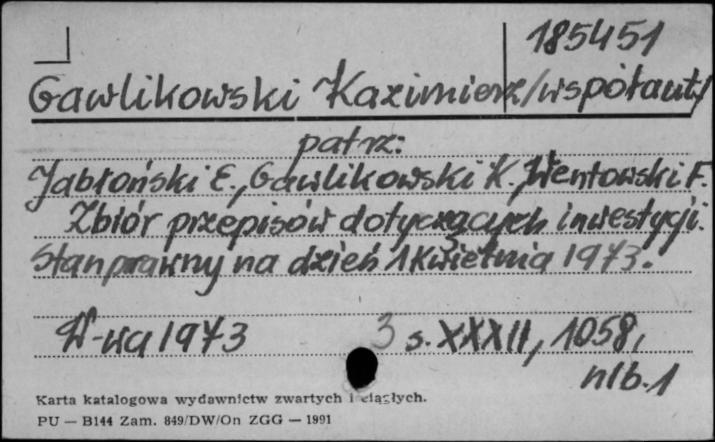 185451
Gawlikowski Kazimierz/współaut/
patrz:
Jabłoński E., Gawlikowski K., Wentowski F.
Zbiór przepisów dotyczących inwestycji.
Stan prawny na dzień 1 kwietnia 1973.
W-wa 1973 3 s. XXXII, 1058,
nlb. 1
Karta katalogowa wydawnictw zwartych i ciągłych.
PU — B144 Zam. 849/DW/On ZGG — 1991